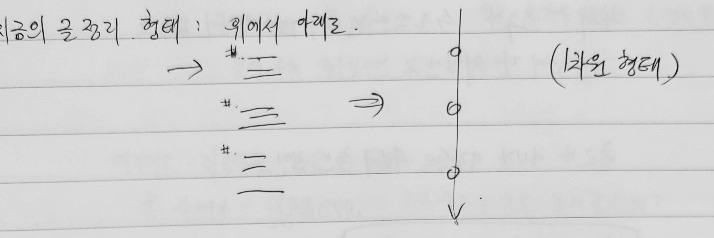 지금의 글 정리 형태 : 위에서 아래로.
#.
(1차원 형태)
#.
#.